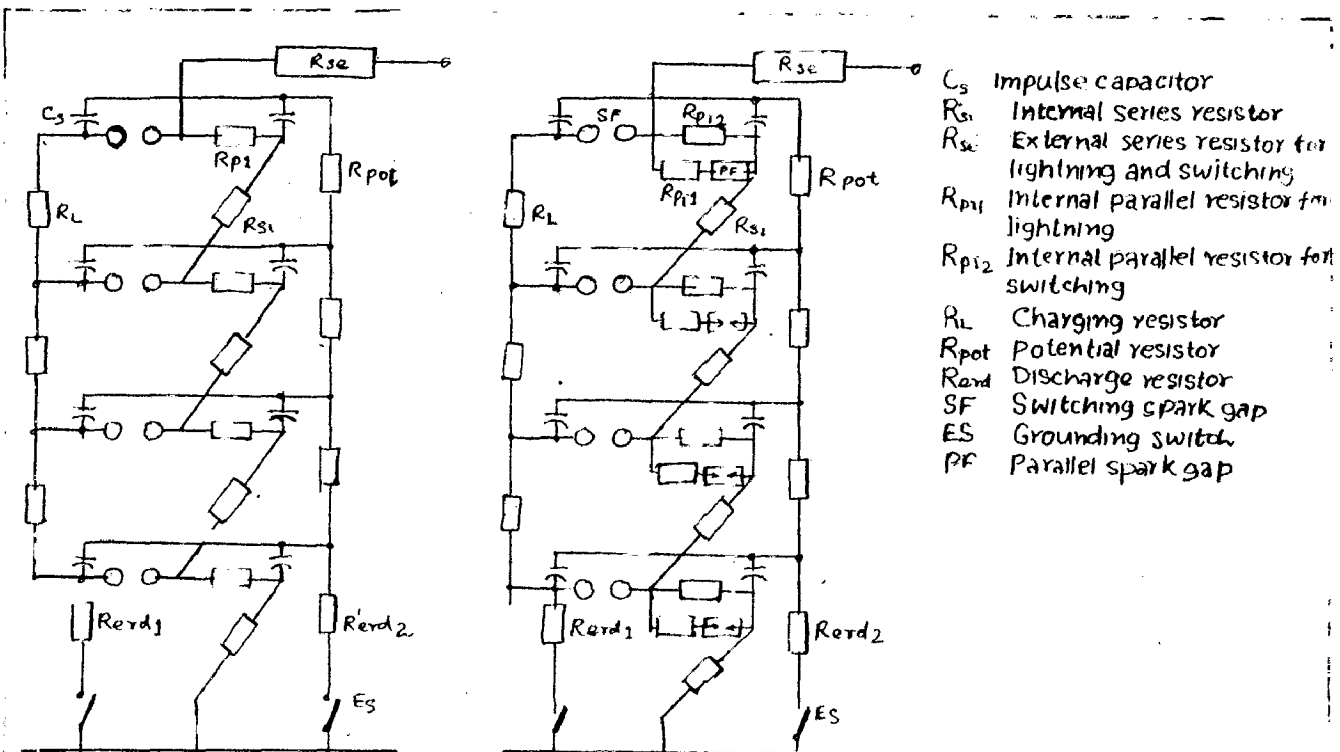 Rse
Cs
Rp1
Rpot
RL
Rsi
Rerd1
R'erd2
ES
Rse
SF
Rpi2
PF
Rpi1
Rpot
RL
Rsi
Rerd1
Rerd2
ES
Cs Impulse capacitor
Rsi Internal series resistor
Rse External series resistor for
lightning and switching
Rpi1 Internal parallel resistor for
lightning
Rpi2 Internal parallel resistor for
switching
RL Charging resistor
Rpot Potential resistor
Rerd Discharge resistor
SF Switching spark gap
ES Grounding switch
PF Parallel spark gap